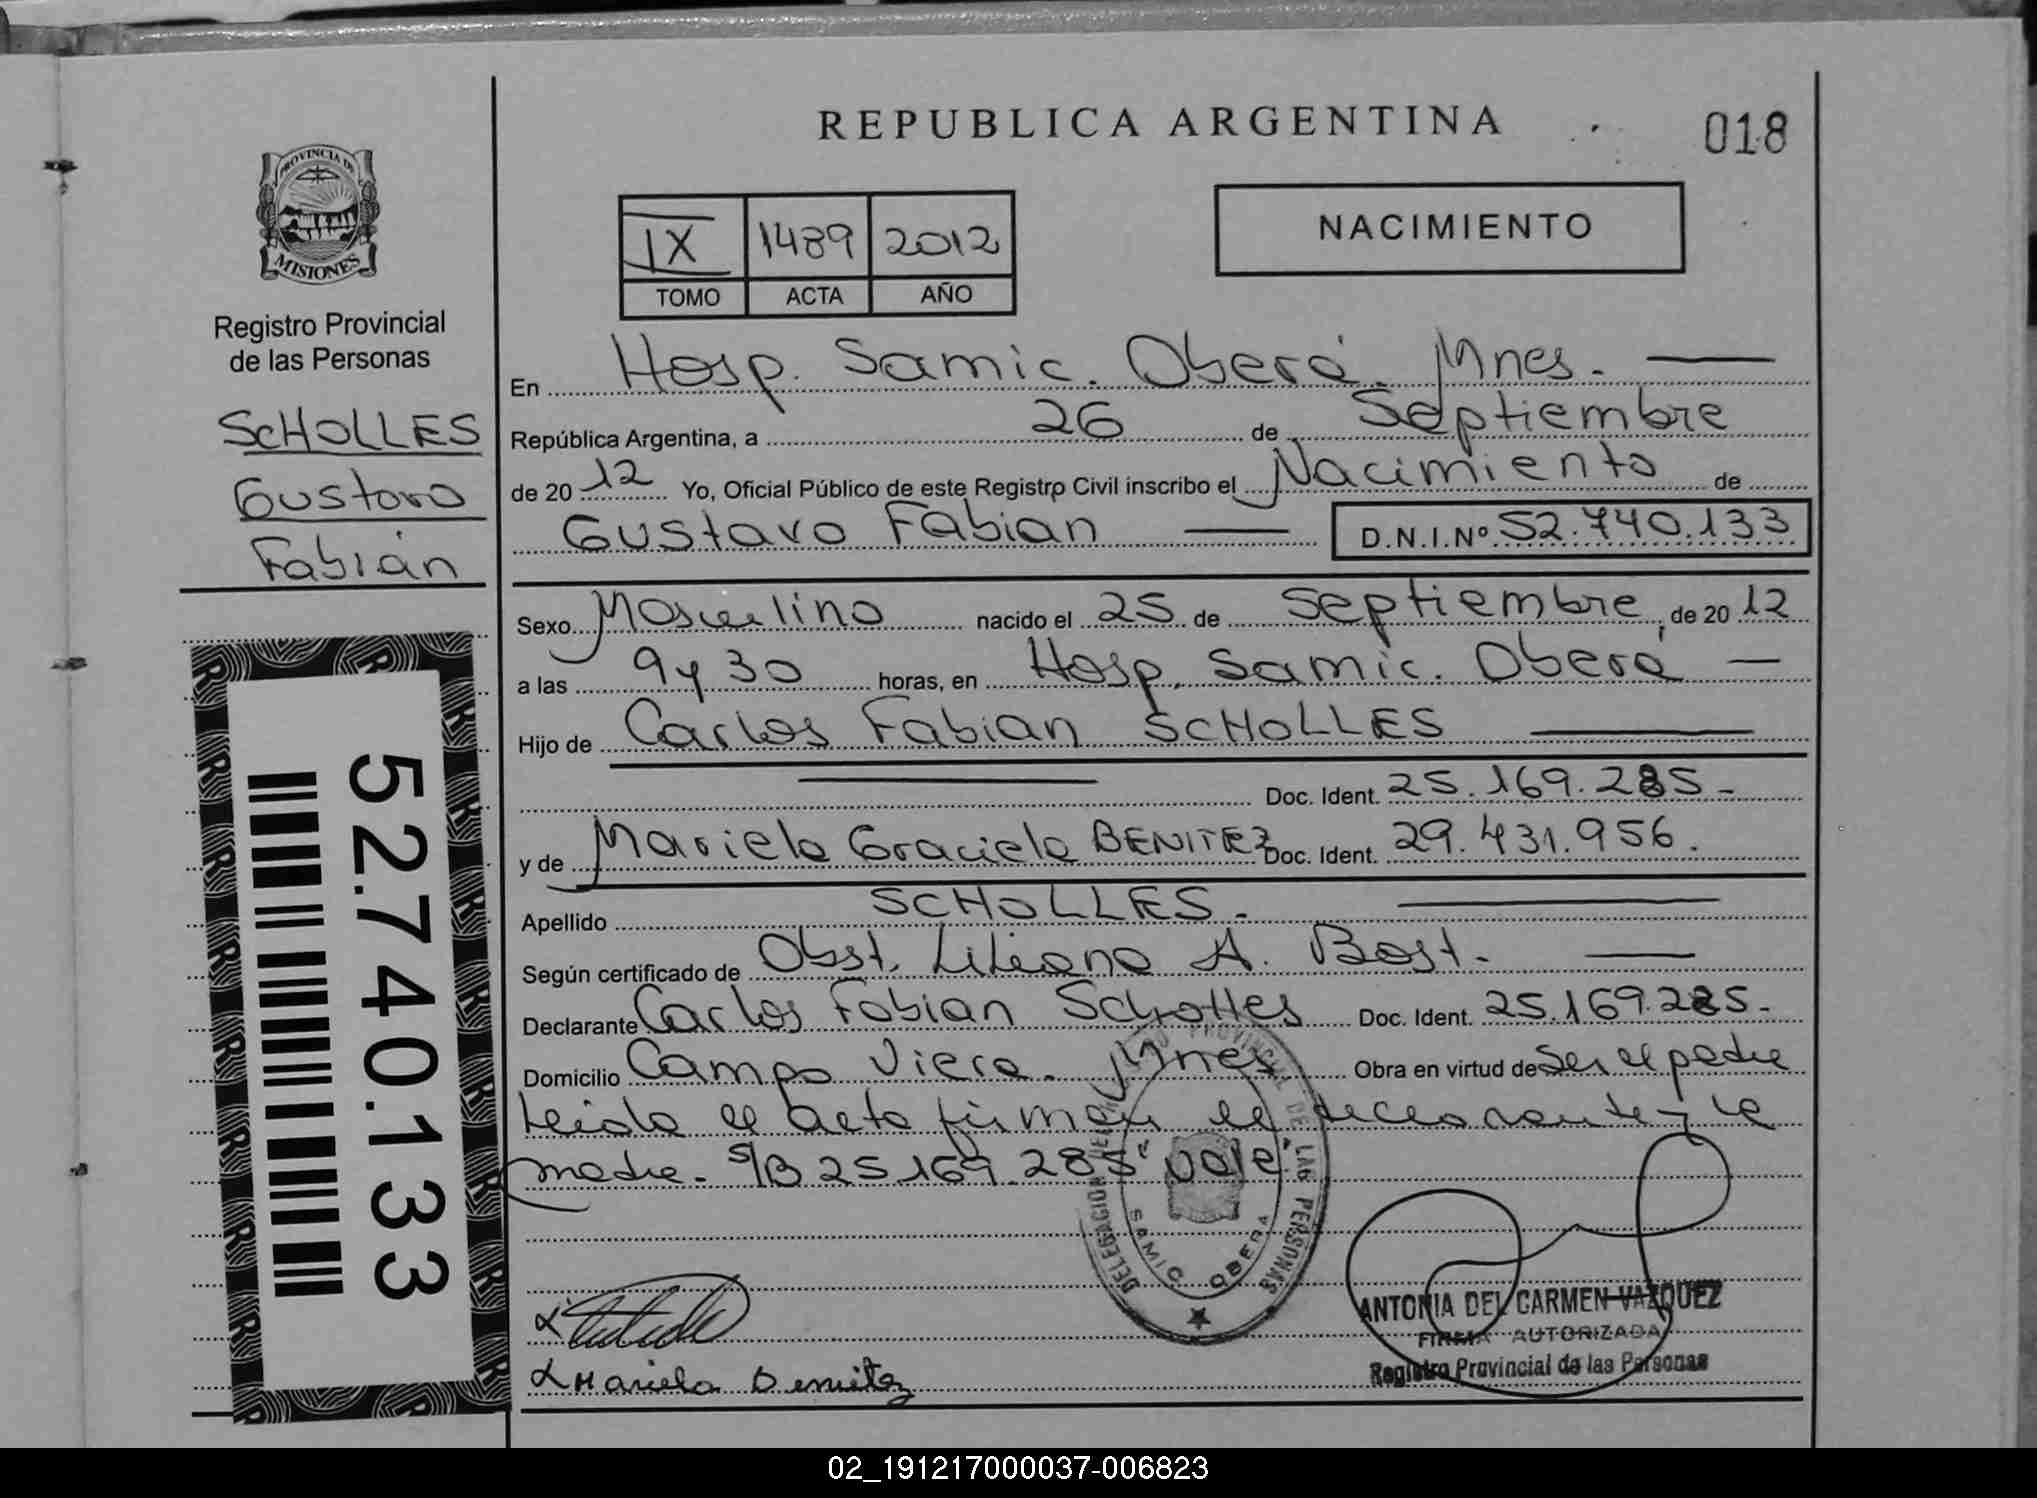 REPUBLICA ARGENTINA
018
PROVINCIA DE
MISIONES
Registro Provincial
de las Personas
SCHOLLES
Gustavo
Fabián
IX 1489 2012
TOMO ACTA AÑO
NACIMIENTO
En Hosp. Samic. Oberá. Mnes.
República Argentina, a 26 de Septiembre
de 20 12 Yo, Oficial Público de este Registro Civil inscribo el Nacimiento de
Gustavo Fabian D.N.I.Nº 52.740.133
Sexo Masculino nacido el 25 de Septiembre, de 20 12
a las 9 y 30 horas, en Hosp. Samic. Oberá
Hijo de Carlos Fabian SCHOLLES
Doc. Ident. 25.169.285-
y de Mariela Graciela BENITEZ Doc. Ident. 29.431.956.
Apellido SCHOLLES.
Según certificado de Obst. Liliana A. Bast.
Declarante Carlos Fabian Scholles Doc. Ident. 25.169.285-
Domicilio Campo Viera. Mnes Obra en virtud de ser el padre
Leida el acta firman el declarante y la
madre. S/B 25169.285 "vale"
52.740.133
DELEGACION PROVINCIAL DE LAS PERSONAS
SAMIC OBERA
ANTONIA DEL CARMEN VAZQUEZ
FIRMA AUTORIZADA
Registro Provincial de las Personas
Mariela Benitez
02_191217000037-006823